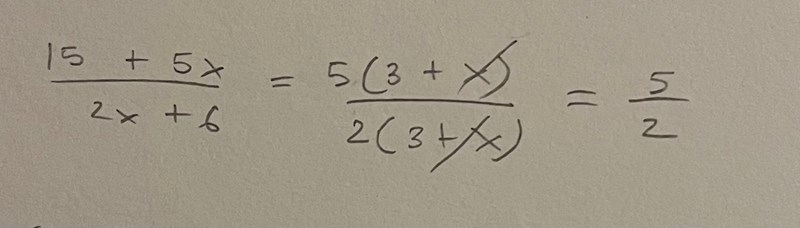 15 + 5x / 2x + 6 = 5(3 + x) / 2(3 + x) = 5 / 2